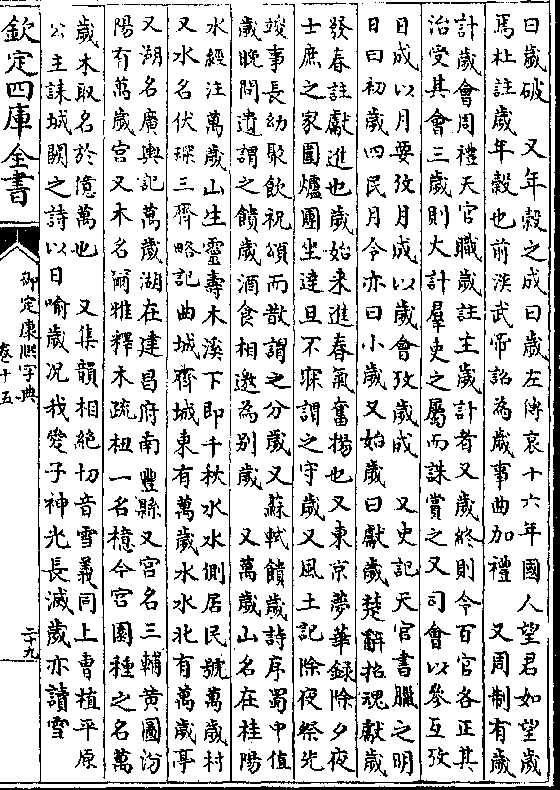 曰歲破　又年穀之成曰歲左傳哀十六年國人望君如望歲
焉杜註歲年穀也前漢武帝詔為歲事曲加禮　又周制有歲
計歲會周禮天官職歲註主歲計者又歲終則令百官各正其
治受其會三歲則大計羣吏之屬而誅賞之又司會以參互攷
日成以月要攷月成以歲會攷歲成　又史記天官書臘之明
日曰初歲四民月令亦曰小歲又始歲曰獻歲楚辭招魂獻歲
發春註獻進也歲始來進春氣奮揚也又東京夢華録除夕夜
士庶之家圍爐團坐達旦不寐謂之守歲又風土記除夜祭先
竣事長幼聚飲祝頌而散謂之分歲又蘇軾饋歲詩序蜀中值
歲晚問遺謂之饋歲酒食相邀為别歲　又萬歲山名在桂陽
水經注萬歲山生靈壽木溪下即千秋水水側居民號萬歲村
又水名伏琛三齊略記曲城齊城東有萬歲水水北有萬歲亭
又湖名廣輿記萬歲湖在建昌府南豐縣又宫名三輔黄圖汾
陽有萬歲宫又木名爾雅釋木疏杻一名檍今宫園種之名萬
歲木取名於億萬也　又集韻相絶切音雪義同上曹植平原
公主誄城闕之詩以日喻歲况我愛子神光長滅歲亦讀雪
欽定四庫全書
御定康熙字典
卷十五
二十九